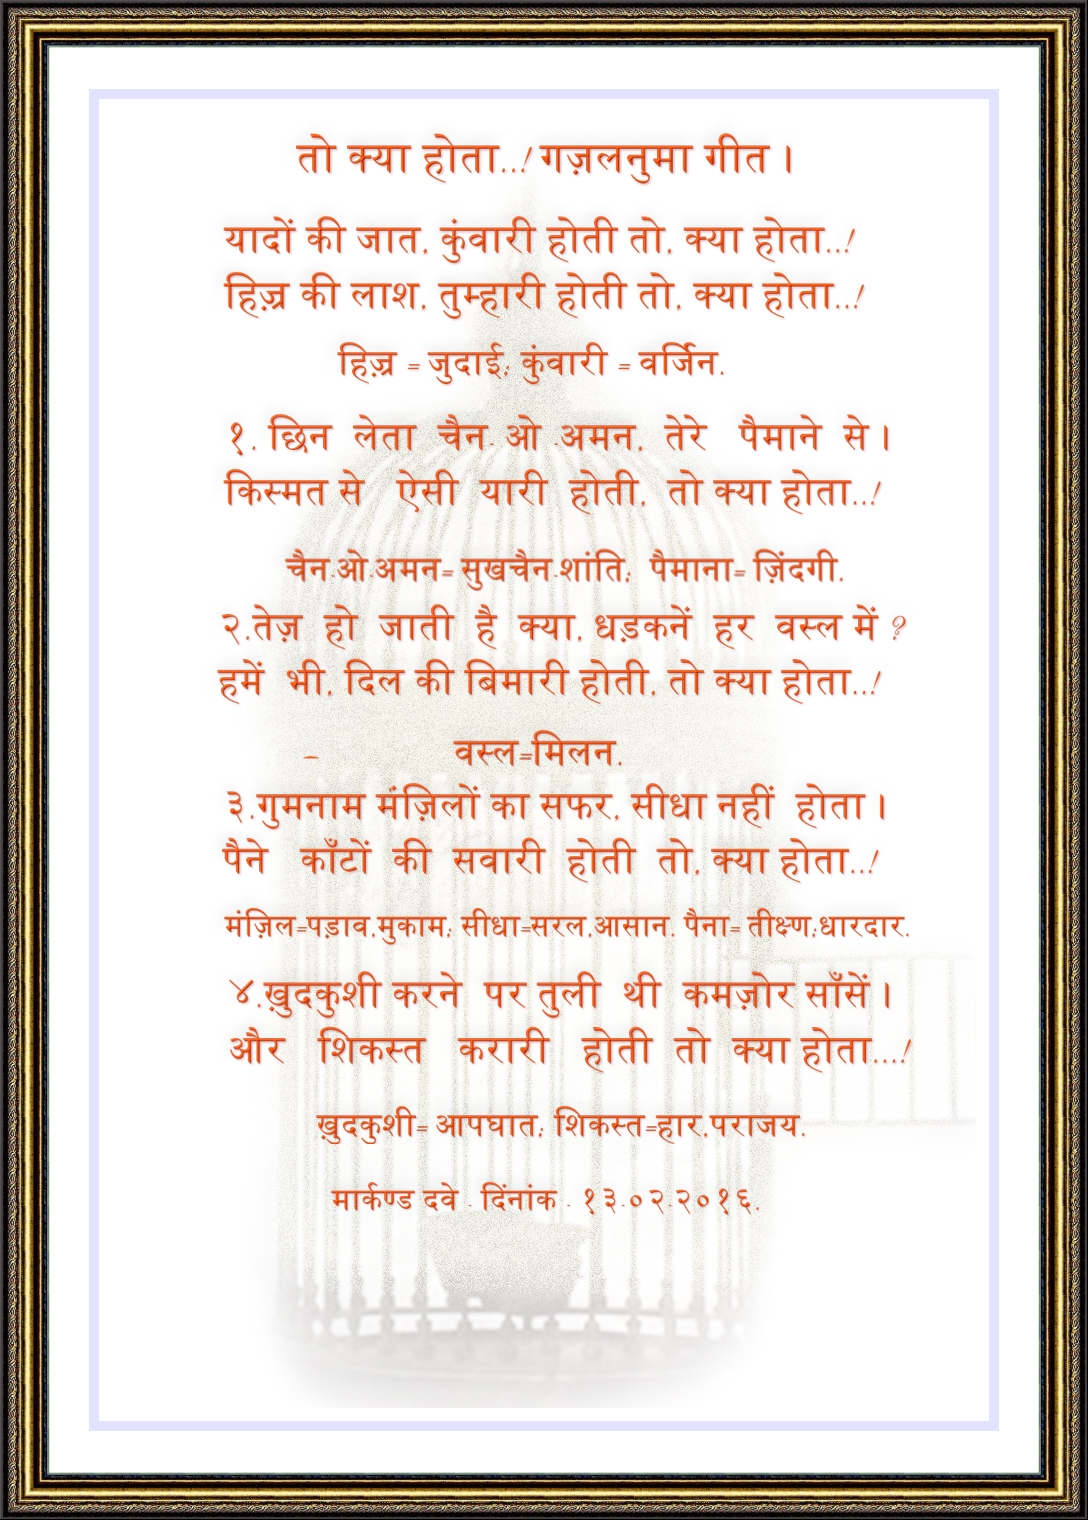 तो क्या होता..! गज़लनुमा गीत ।
यादों की जात, कुंवारी होती तो, क्या होता..!
हिज़्र की लाश, तुम्हारी होती तो, क्या होता..!
हिज़्र = जुदाई; कुंवारी = वर्जिन.
१. छिन लेता चैन-ओ-अमन, तेरे पैमाने से ।
किस्मत से ऐसी यारी होती, तो क्या होता..!
चैन-ओ-अमन= सुखचैन-शांति; पैमाना= ज़िंदगी.
२.तेज़ हो जाती है क्या, धड़कनें हर वस्ल में ?
हमें भी, दिल की बिमारी होती, तो क्या होता..!
- वस्ल=मिलन.
३.गुमनाम मंज़िलों का सफर, सीधा नहीं होता ।
पैने काँटों की सवारी होती तो, क्या होता..!
मंज़िल=पड़ाव,मुकाम; सीधा=सरल,आसान. पैना= तीक्ष्ण;धारदार.
४.ख़ुदकुशी करने पर तुली थी कमज़ोर साँसें ।
और शिकस्त करारी होती तो क्या होता...!
ख़ुदकुशी= आपघात; शिकस्त=हार,पराजय.
मार्कण्ड दवे - दिंनांक - १३-०२-२०१६.